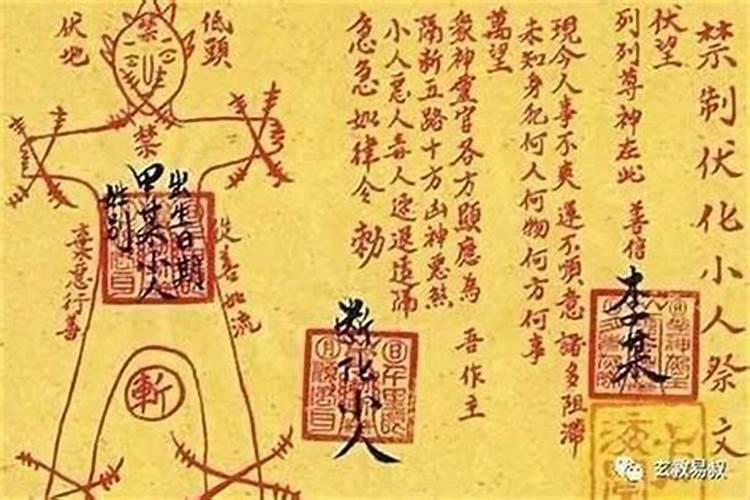 禁制伏化小人祭文
伏望
列列尊神在此 善信
李某
現今人事不爽運不順意諸多阻滯
未知身犯何人何物何方何事
萬望
眾神靈官各方顯應為 吾作主
隔斬五路十方凶神惡煞
小人惡人毒人速退遠隔
急急如律令 勅
斷化小人
低頭
伏地
禁
禁
出生日期
甲某小人
姓名
從善如流
棄惡行善
斬
玄教易叔